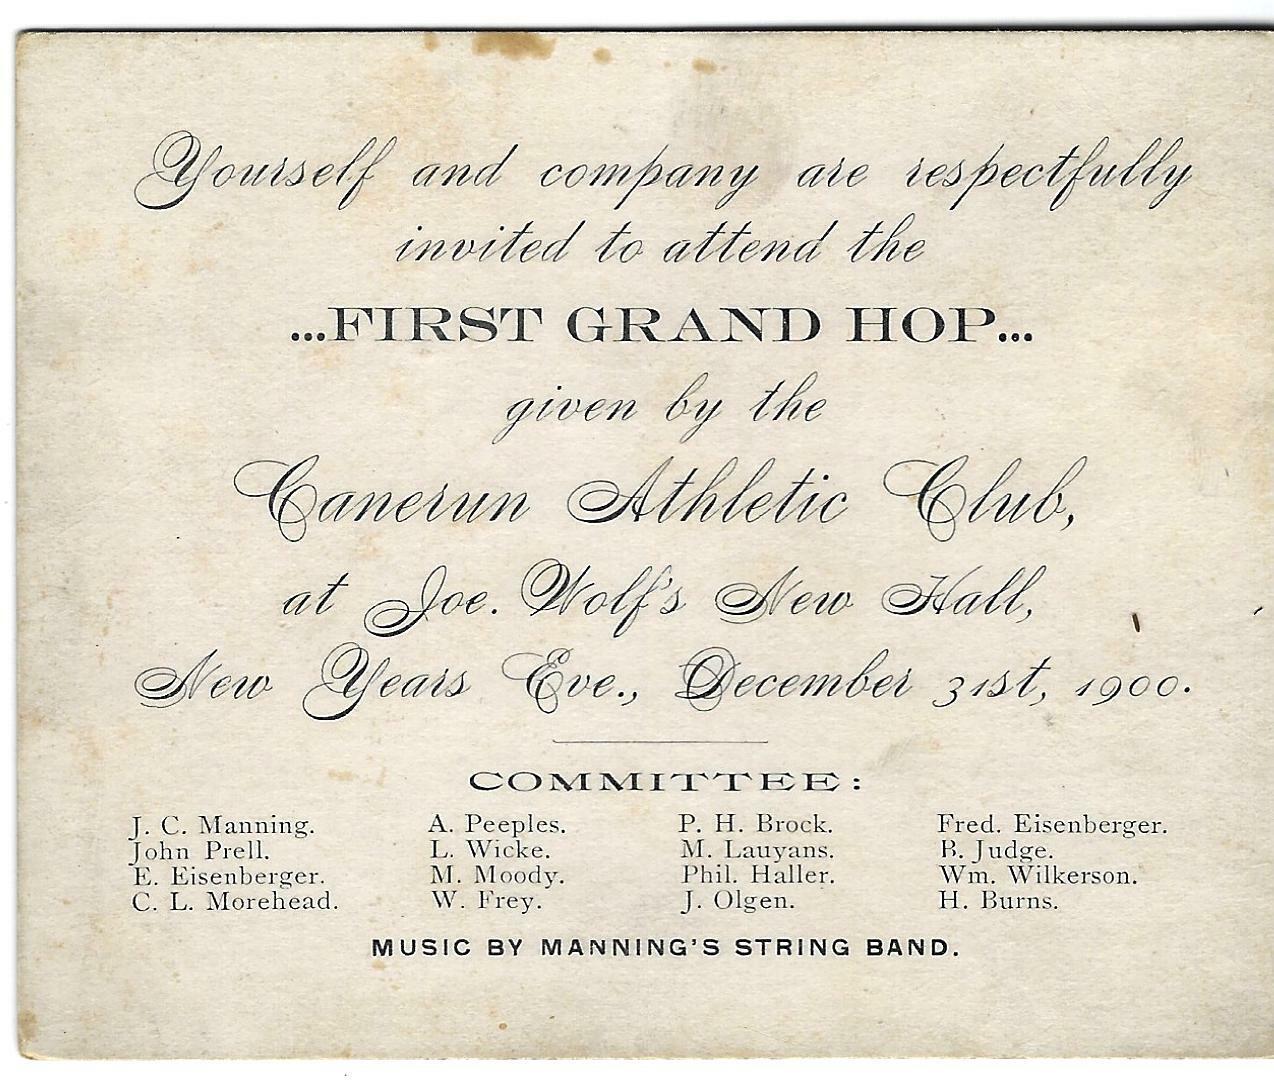 Yourself and company are respectfully
invited to attend the
...FIRST GRAND HOP...
given by the
Canerun Athletic Club,
at Joe. Wolf's New Hall,
New Years Eve., December 31st, 1900.
COMMITTEE:
J. C. Manning. A. Peeples. P. H. Brock. Fred. Eisenberger.
John Prell. L. Wicke. M. Lauyans. B. Judge.
E. Eisenberger. M. Moody. Phil. Haller. Wm. Wilkerson.
C. L. Morehead. W. Frey. J. Olgen. H. Burns.
MUSIC BY MANNING'S STRING BAND.